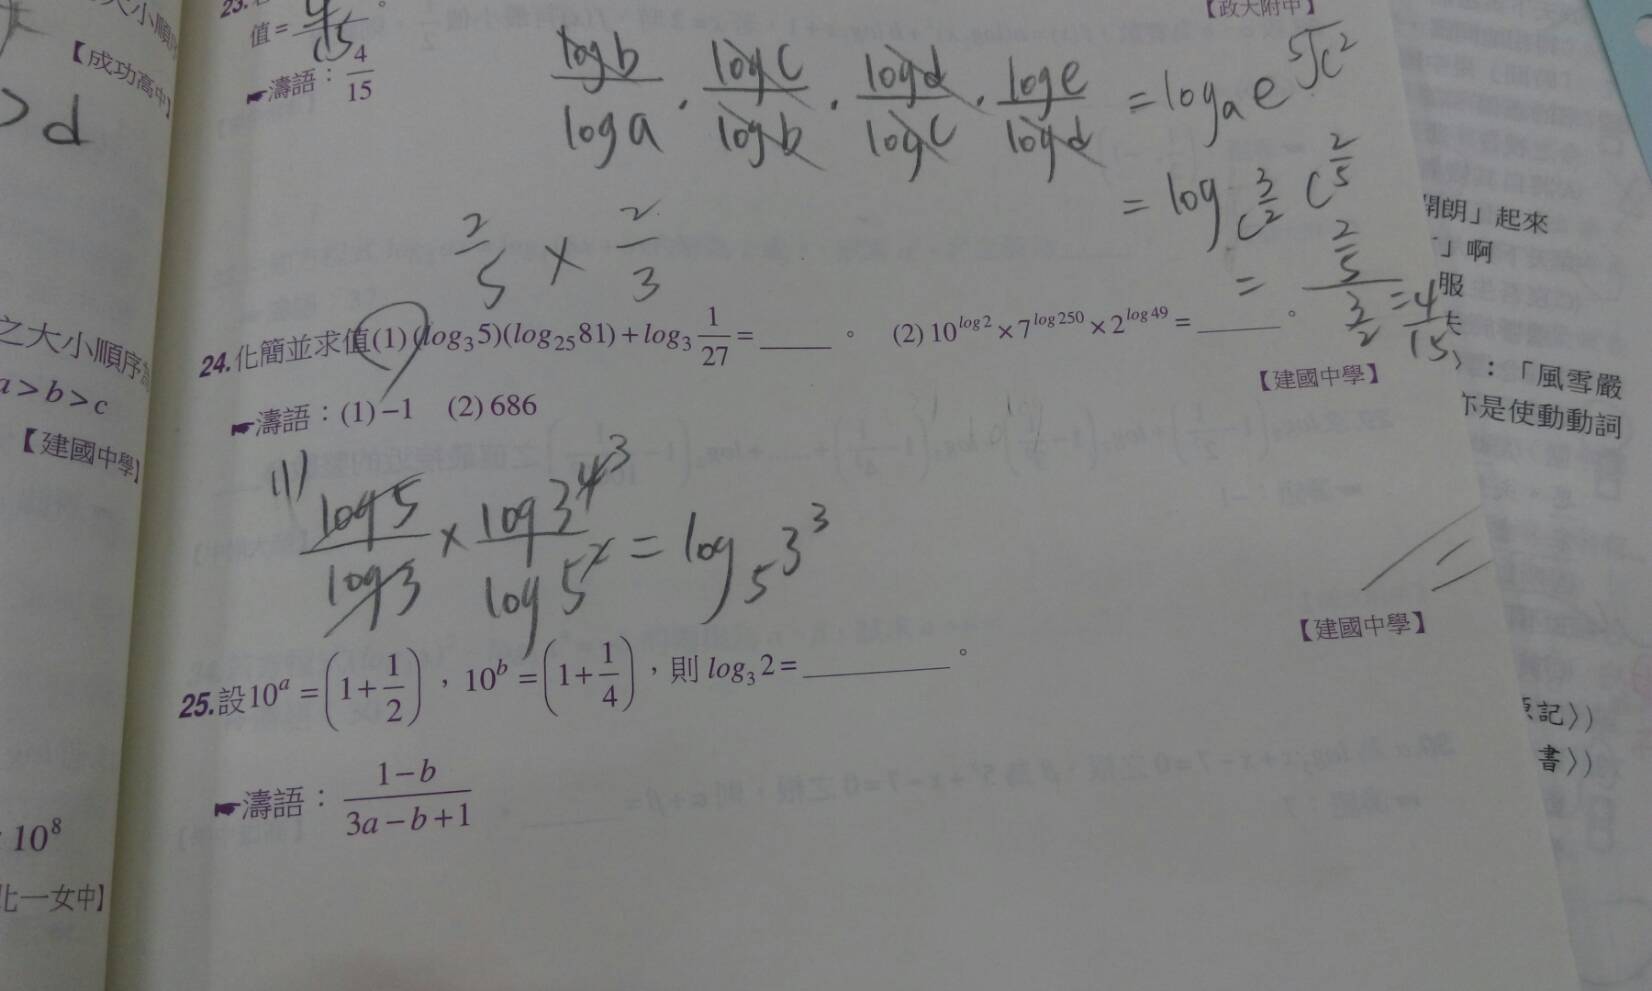 大小順序
【成功高中】
> d
之大小順序
a > b > c
【建國中學】
10⁸
北一女中】
23.
值 = 4/15 。
☛濤語：4/15
【政大附中】
log b / log a · log c / log b · log d / log c · log e / log d = logₐ e
⁵√c²
= log_{c^{3/2}} c^{2/5}
= (2/5)/(3/2) = 4/15
2/5 × 2/3
24.化簡並求值(1)(log₃5)(log₂₅81)+log₃ 1/27 = _____ 。 (2)10^{log2}×7^{log250}×2^{log49} = ______ 。
【建國中學】
☛濤語：(1)−1 (2)686
(1) log 5 / log 3 × log 3⁴ / log 5² = log₅ 3³
3
【建國中學】
25.設10ᵃ = (1+1/2)，10ᵇ = (1+1/4)，則 log₃2 = __________ 。
☛濤語：(1−b)/(3a−b+1)
開朗」起來
」啊
服
：「風雪嚴
是使動動詞
記〉)
書〉)